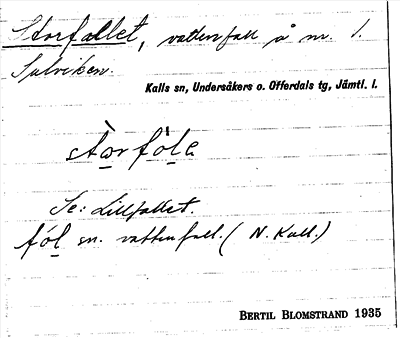 Storfallet, vattenfall å nr. 1.
Sulviken.
Kalls sn, Undersåkers o. Offerdals tg, Jämtl. l.
stòrfó̀le
Se: Lillfallet.
fól sn. vattenfall. (N. Kall.)
BERTIL BLOMSTRAND 1935